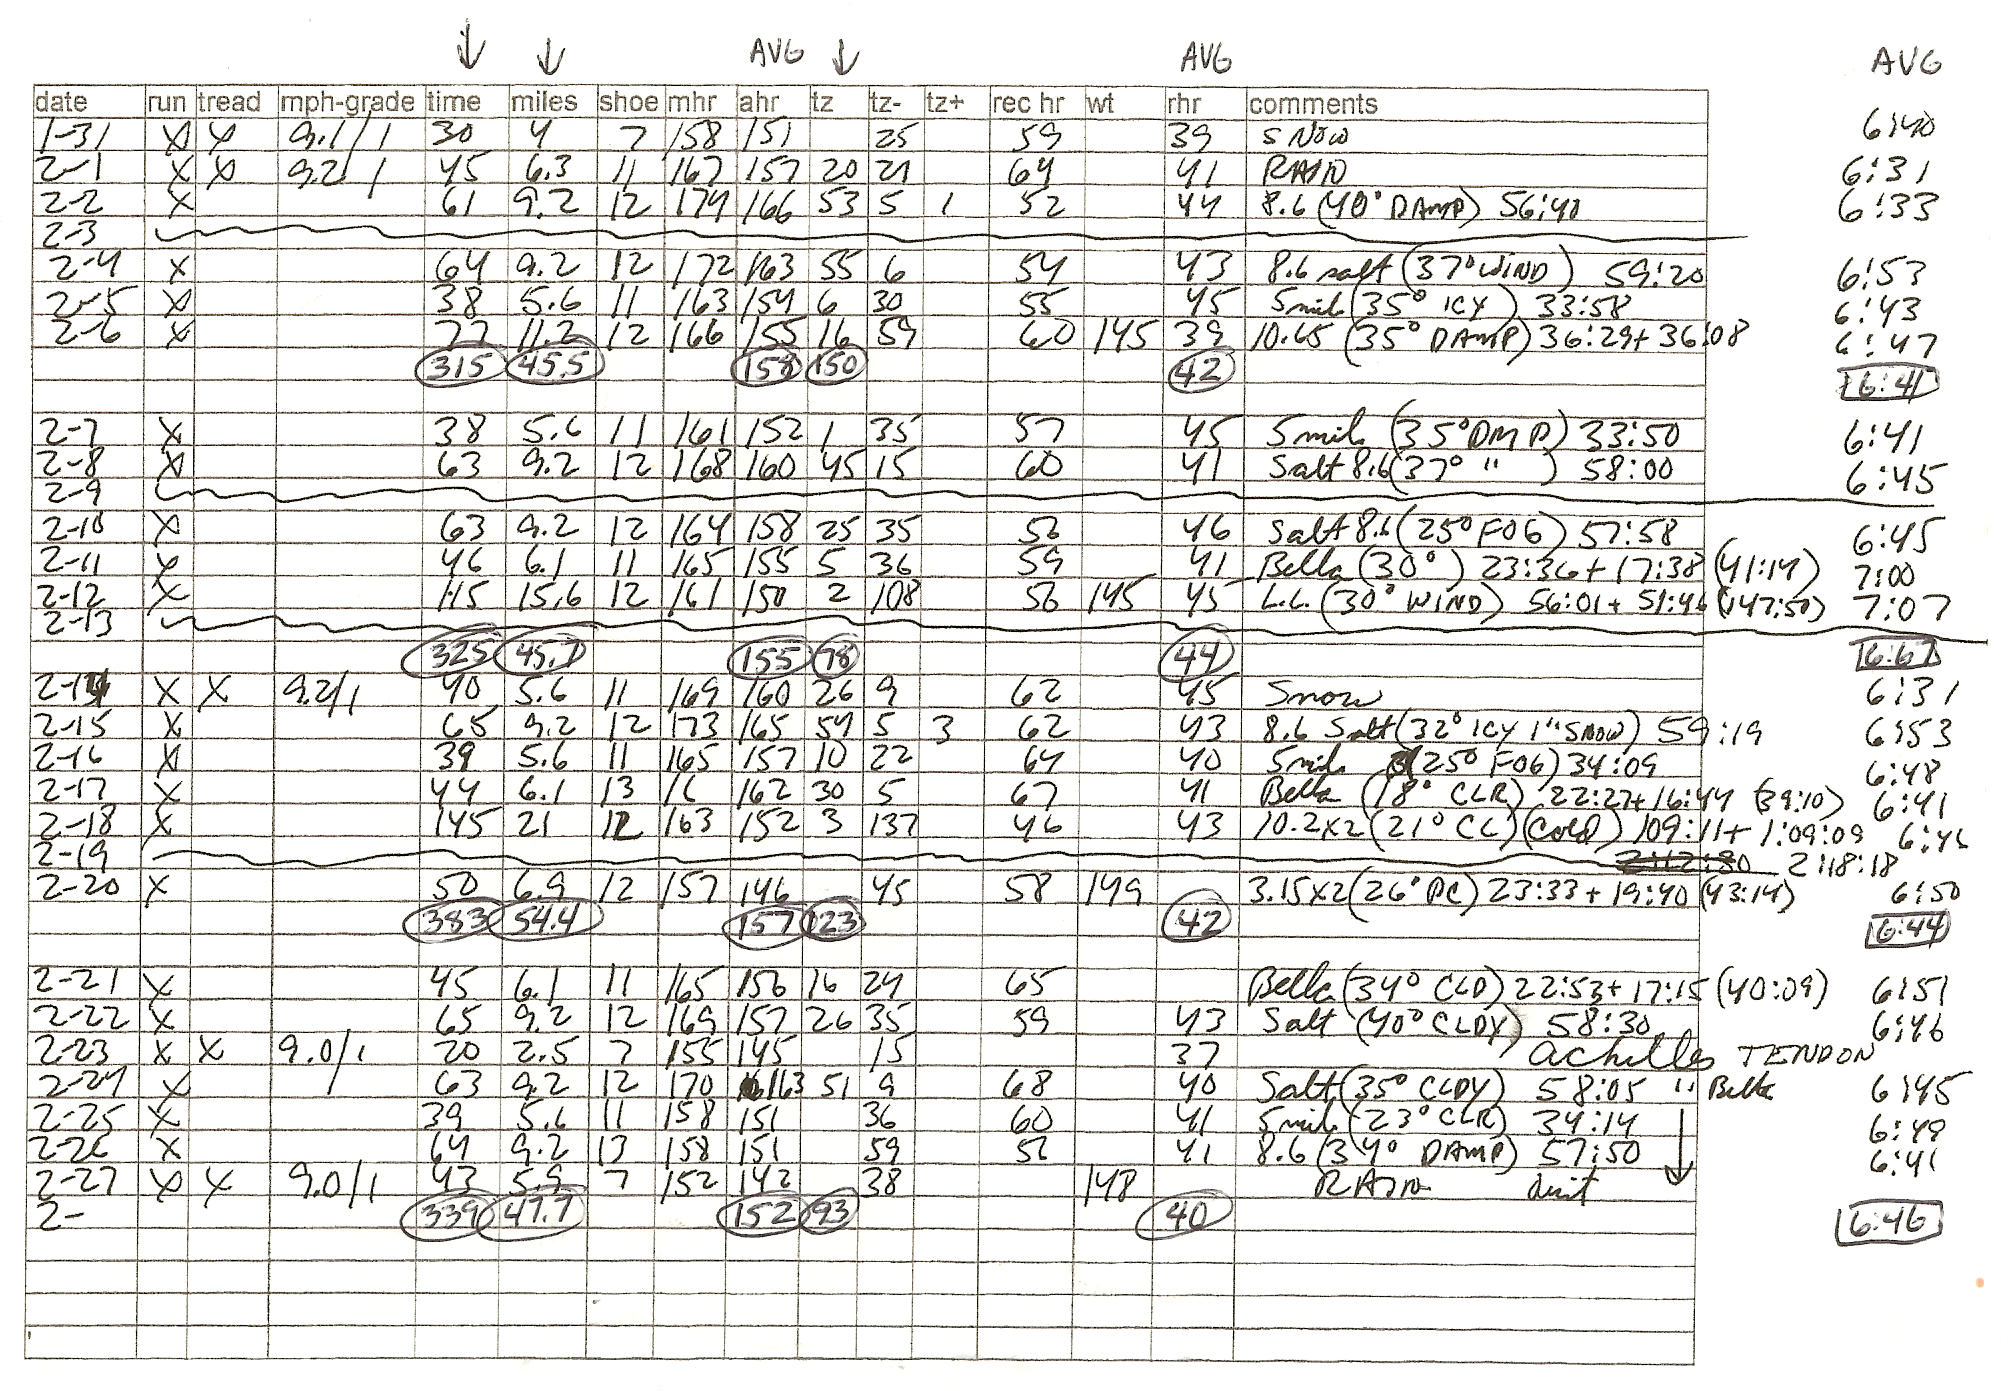 AVG AVG AVG
date run tread mph-grade time miles shoe mhr ahr tz tz- tz+ rec hr wt rhr comments
1-31 X X 9.1/1 30 4 7 158 151 25 59 39 SNOW 6:40
2-1 X X 9.2/1 45 6.3 11 167 157 20 21 64 41 RAIN 6:31
2-2 X 61 9.2 12 174 166 53 5 1 52 44 8.6 (40° DAMP) 56:40 6:33
2-3
2-4 X 64 9.2 12 172 163 55 6 54 43 8.6 salt (37° WIND) 59:20 6:53
2-5 X 38 5.6 11 163 154 6 30 55 45 5mile (35° ICY) 33:58 6:43
2-6 X 77 11.2 12 166 155 16 59 60 145 39 10.65 (35° DAMP) 36:29+36:08 6:47
315 45.5 158 150 42 6:41
2-7 X 38 5.6 11 161 152 1 35 57 45 5mile (35° DMP) 33:50 6:41
2-8 X 63 9.2 12 168 160 45 15 60 41 Salt 8.6 (37° " ) 58:00 6:45
2-9
2-10 X 63 9.2 12 164 158 25 35 56 46 Salt 8.6 (25° FOG) 57:58 6:45
2-11 X 46 6.1 11 165 155 5 36 59 41 Bella (30° ) 23:36+17:38 (41:14) 7:00
2-12 X 115 15.6 12 161 150 2 108 56 145 45 L.L. (30° WIND) 56:01+51:46 (147:50) 7:07
2-13
325 45.7 155 78 44
2-14 X X 9.2/1 40 5.6 11 169 160 26 9 62 45 Snow 6:31
2-15 X 65 9.2 12 173 165 54 5 3 62 43 8.6 Salt (32° ICY 1" SNOW) 59:19 6:53
2-16 X 39 5.6 11 165 157 10 22 64 40 5mile (25° FOG) 34:09 6:48
2-17 X 44 6.1 13 16 162 30 5 67 41 Bella (18° CLR) 22:27+16:44 (39:10) 6:41
2-18 X 145 21 12 163 152 3 137 46 43 10.2x2 (21° CL) (Cold) 109:11+1:09:09 6:46
2-19 2:12:30 2:18:18
2-20 X 50 6.9 12 157 146 45 58 149 3.15x2 (26° PC) 23:33+19:40 (43:14) 6:50
383 54.4 157 123 42 6:44
2-21 X 45 6.1 11 165 156 16 24 65 Bella (34° CLD) 22:53+17:15 (40:09) 6:51
2-22 X 65 9.2 12 169 157 26 35 59 43 Salt (40° CLDY) 58:30 6:46
2-23 X X 9.0/1 20 2.5 7 155 145 15 37 achilles TENDON
2-24 X 63 9.2 12 170 163 51 9 68 40 Salt (35° CLDY) 58:05 " Bella 6:45
2-25 X 39 5.6 11 158 151 36 60 41 5mile (23° CLR) 34:14 6:49
2-26 X 64 9.2 13 158 151 59 56 41 8.6 (34° DAMP) 57:50 6:41
2-27 X X 9.0/1 43 5.9 7 152 142 38 148 RAIN
2- 339 47.7 152 93 40 6:46